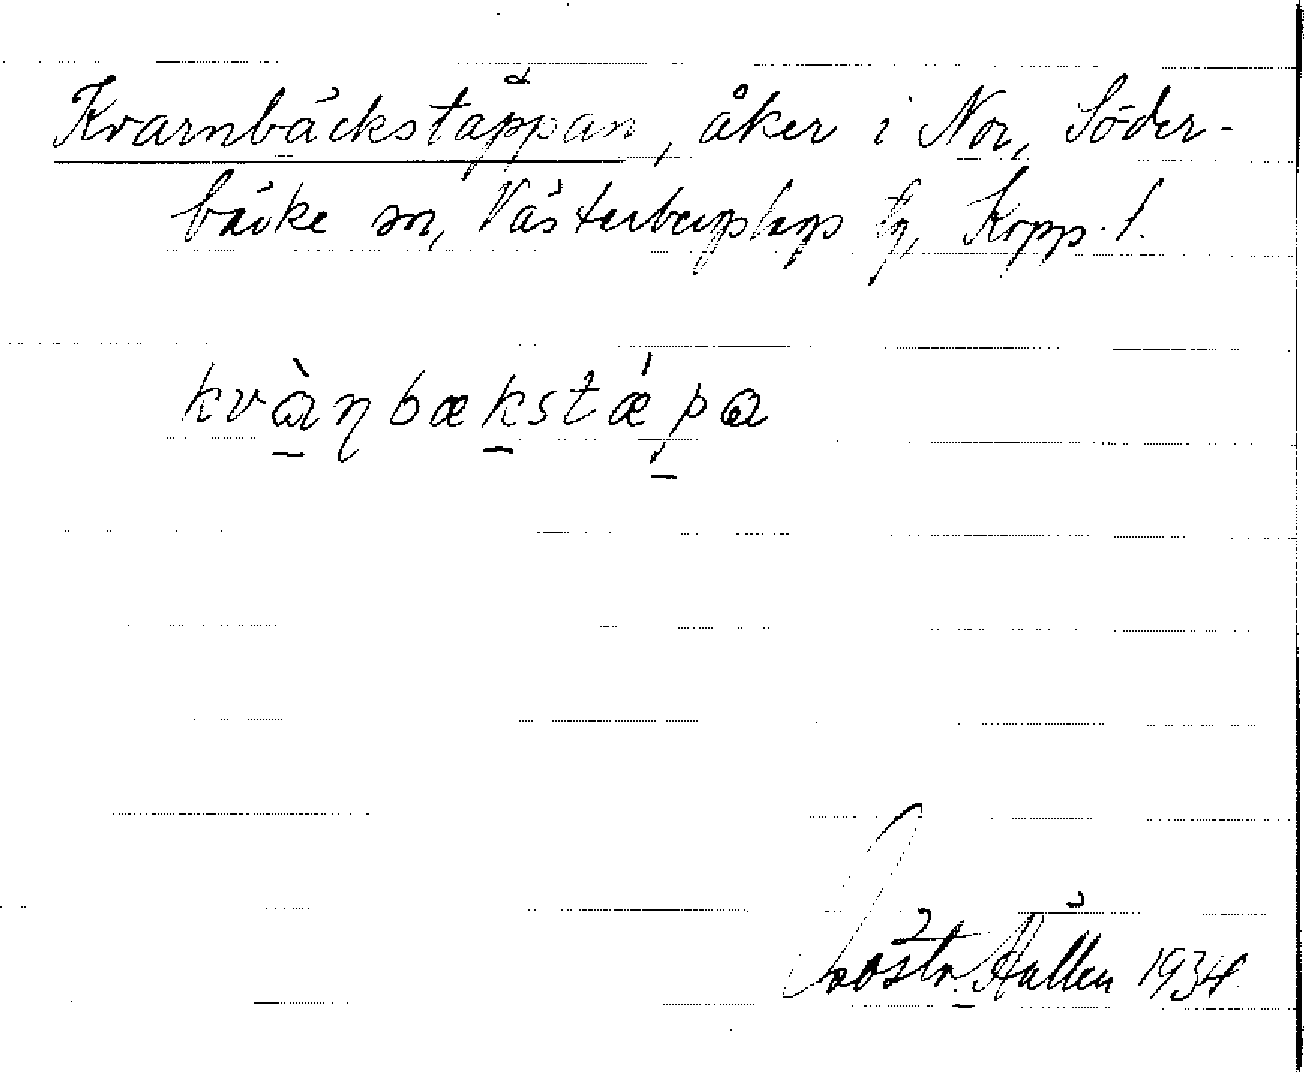 Kvarnbäckstäppan, åker i Nor, Söder-
bärke sn, Västerbergslags tg, Kopp. l.
kvànbækstǽpa
1934